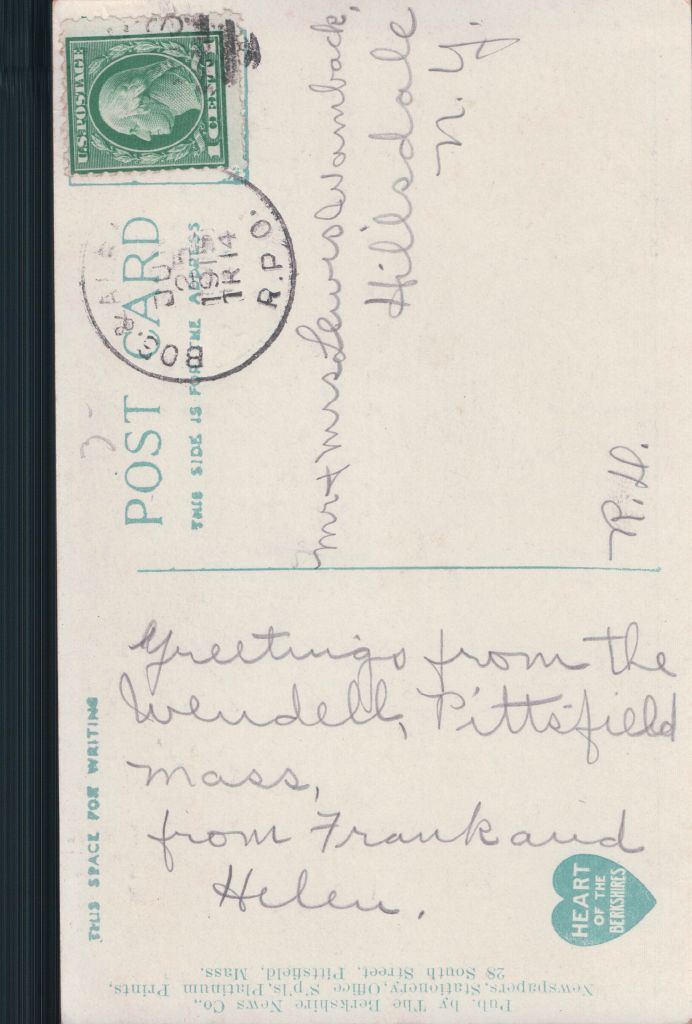 POST CARD
THIS SIDE IS FOR THE ADDRESS
U.S. POSTAGE
1 CENT 1
BOS. &
25
1915
TR 14
R.P.O.
Mr + Mrs Lewis Wamback,
Hillsdale
N. Y.
R. D.
THIS SPACE FOR WRITING
Greetings from the
Wendell, Pittsfield
Mass,
from Frank and
Helen.
HEART
OF THE
BERKSHIRES
Pub. by The Berkshire News Co.,
Newspapers, Stationery, Office S'p'ls, Platinum Prints,
28 South Street, Pittsfield, Mass.